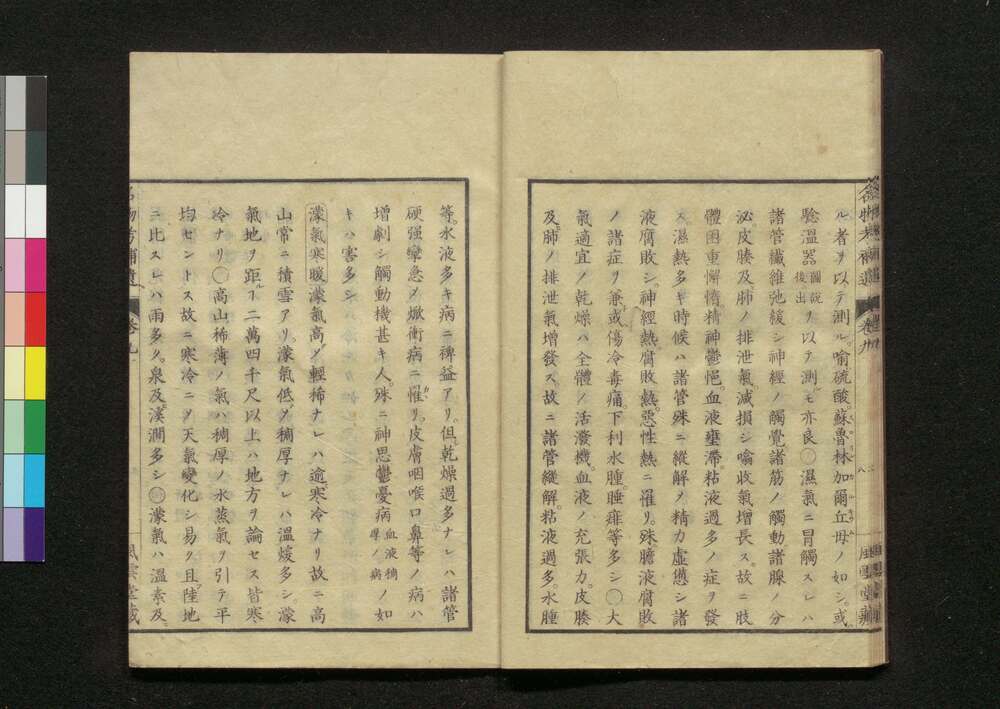 ル者ヲ以テ測ル。喻硫酸蘇魯林加爾丘母ノ如シ。或ハ
驗溫器圖說後出ヲ以テ測ルモ亦良○濕氣ニ冒觸スレハ
諸管纖維弛緩シ神經ノ觸覺諸筋ノ觸動諸腺ノ分
泌皮腠及肺ノ排泄氣減損シ噏收氣增長ス。故ニ肢
體困重懈惰精神鬱悒血液壅滯粘液過多ノ症ヲ發
ス濕熱多キ時候ハ諸管殊ニ縱解ノ精力虛憊シ諸
液腐敗シ。神經熱腐敗熱惡性熱ニ罹リ。殊膽液腐敗
ノ諸症ヲ兼或傷冷毒痛。下利水腫。腄痱等多シ○大
氣適宜ノ乾燥ハ全體ノ活潑機血液ノ充張力。皮腠
及肺ノ排泄氣增發ス。故ニ諸管縱解。粘液過多。水腫
卷九
八二
風雲堂藏
等。水液多キ病ニ裨益アリ。但乾燥過多ナレハ諸管
硬强攣急ノ焮衝病ニ罹リ。皮膚咽喉口鼻等ノ病ハ
增劇シ觸動機甚キ人。殊ニ神思鬱憂病血液稠厚ノ病ノ如
キハ害多シ
濛氣寒暖濛氣高ク輕稀ナレハ逾寒冷ナリ故ニ高
山常ニ積雪アリ。濛氣低ク稠厚ナレハ溫煖多シ。濛
氣地ヲ距ルヿ二萬四千尺以上ハ地方ヲ論セス皆寒
冷ナリ○高山稀薄ノ氣ハ稠厚ノ水蒸氣ヲ引テ平
均セントス故ニ寒冷ニノ天氣變化シ易ク且陸地
ニ比スレハ雨多ク。泉及溪澗多シ○濛氣ハ溫素及
名物考補遺
卷九
風雲堂藏